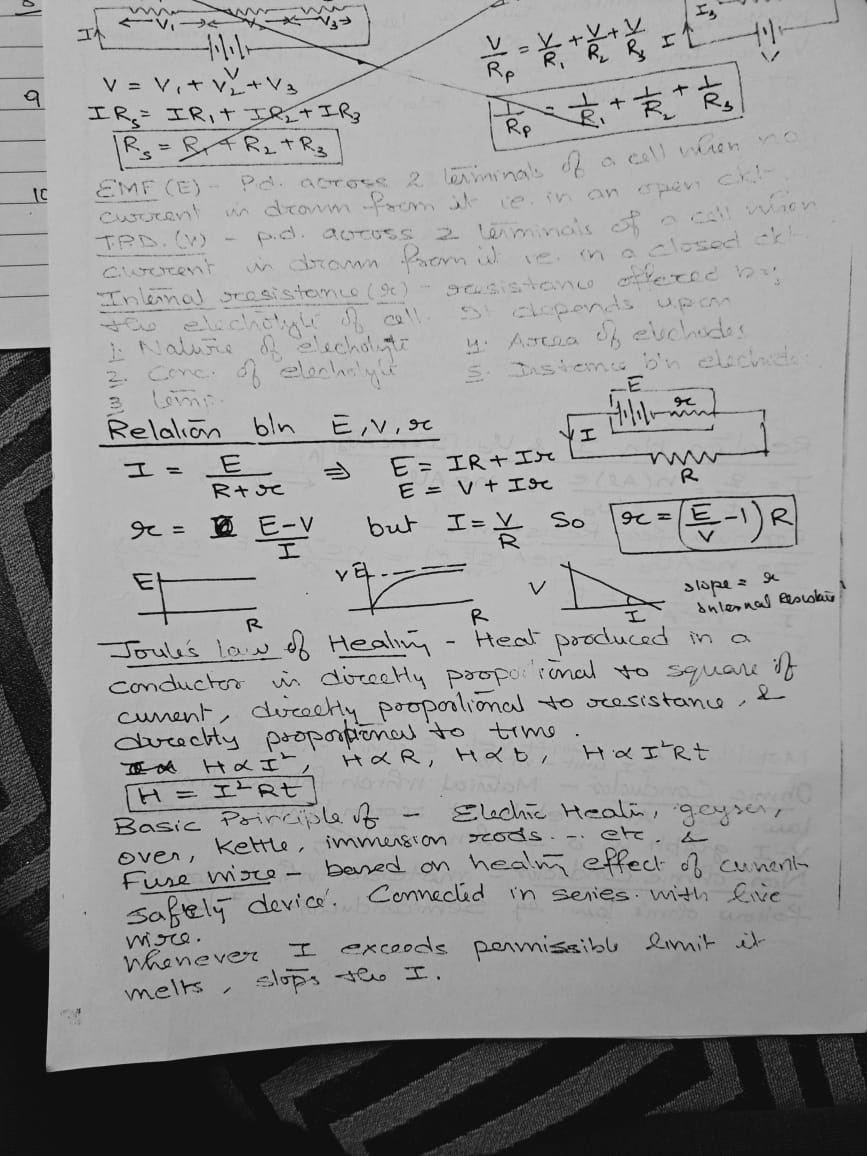 9
10
I V₁ V₂ V₃
V
V = V₁ + V₂ + V₃
I Rs = IR₁ + IR₂ + IR₃
Rs = R₁ + R₂ + R₃
I₃
I
V
V/Rp = V/R₁ + V/R₂ + V/R₃
1/Rp = 1/R₁ + 1/R₂ + 1/R₃
EMF (E) - P.d. across 2 terminals of a cell when no
current is drawn from it ie. in an open ckt.
T.P.D. (V) - p.d. across 2 terminals of a cell when
current is drawn from it ie. in a closed ckt.
Internal resistance (r) - resistance offered by
the electrolyte of cell. It depends upon
1. Nature of electrolyte
2. Conc. of electrolyte
3 temp.
4. Area of electrodes
5. Distance b/n electrode
Relation b/n E, V, r
E
r
I
R
I = E/(R+r) ⇒ E = IR + Ir
E = V + Ir
r = (E-V)/I but I = V/R So r = (E/V - 1) R
E R
V E R
V I
slope = r
internal Resistance
Joule's law of Heating - Heat produced in a
conductor is directly proportional to square of
current, directly proportional to resistance, &
directly proportional to time.
H ∝ I², H ∝ R, H ∝ t, H ∝ I²Rt
H = I²Rt
Basic Principle of - Electric Heater, geyser,
oven, Kettle, immersion rods... etc &
Fuse wire - based on heating effect of current
safety device. Connected in series with live
wire.
Whenever I exceeds permissible limit it
melts, stops the I.